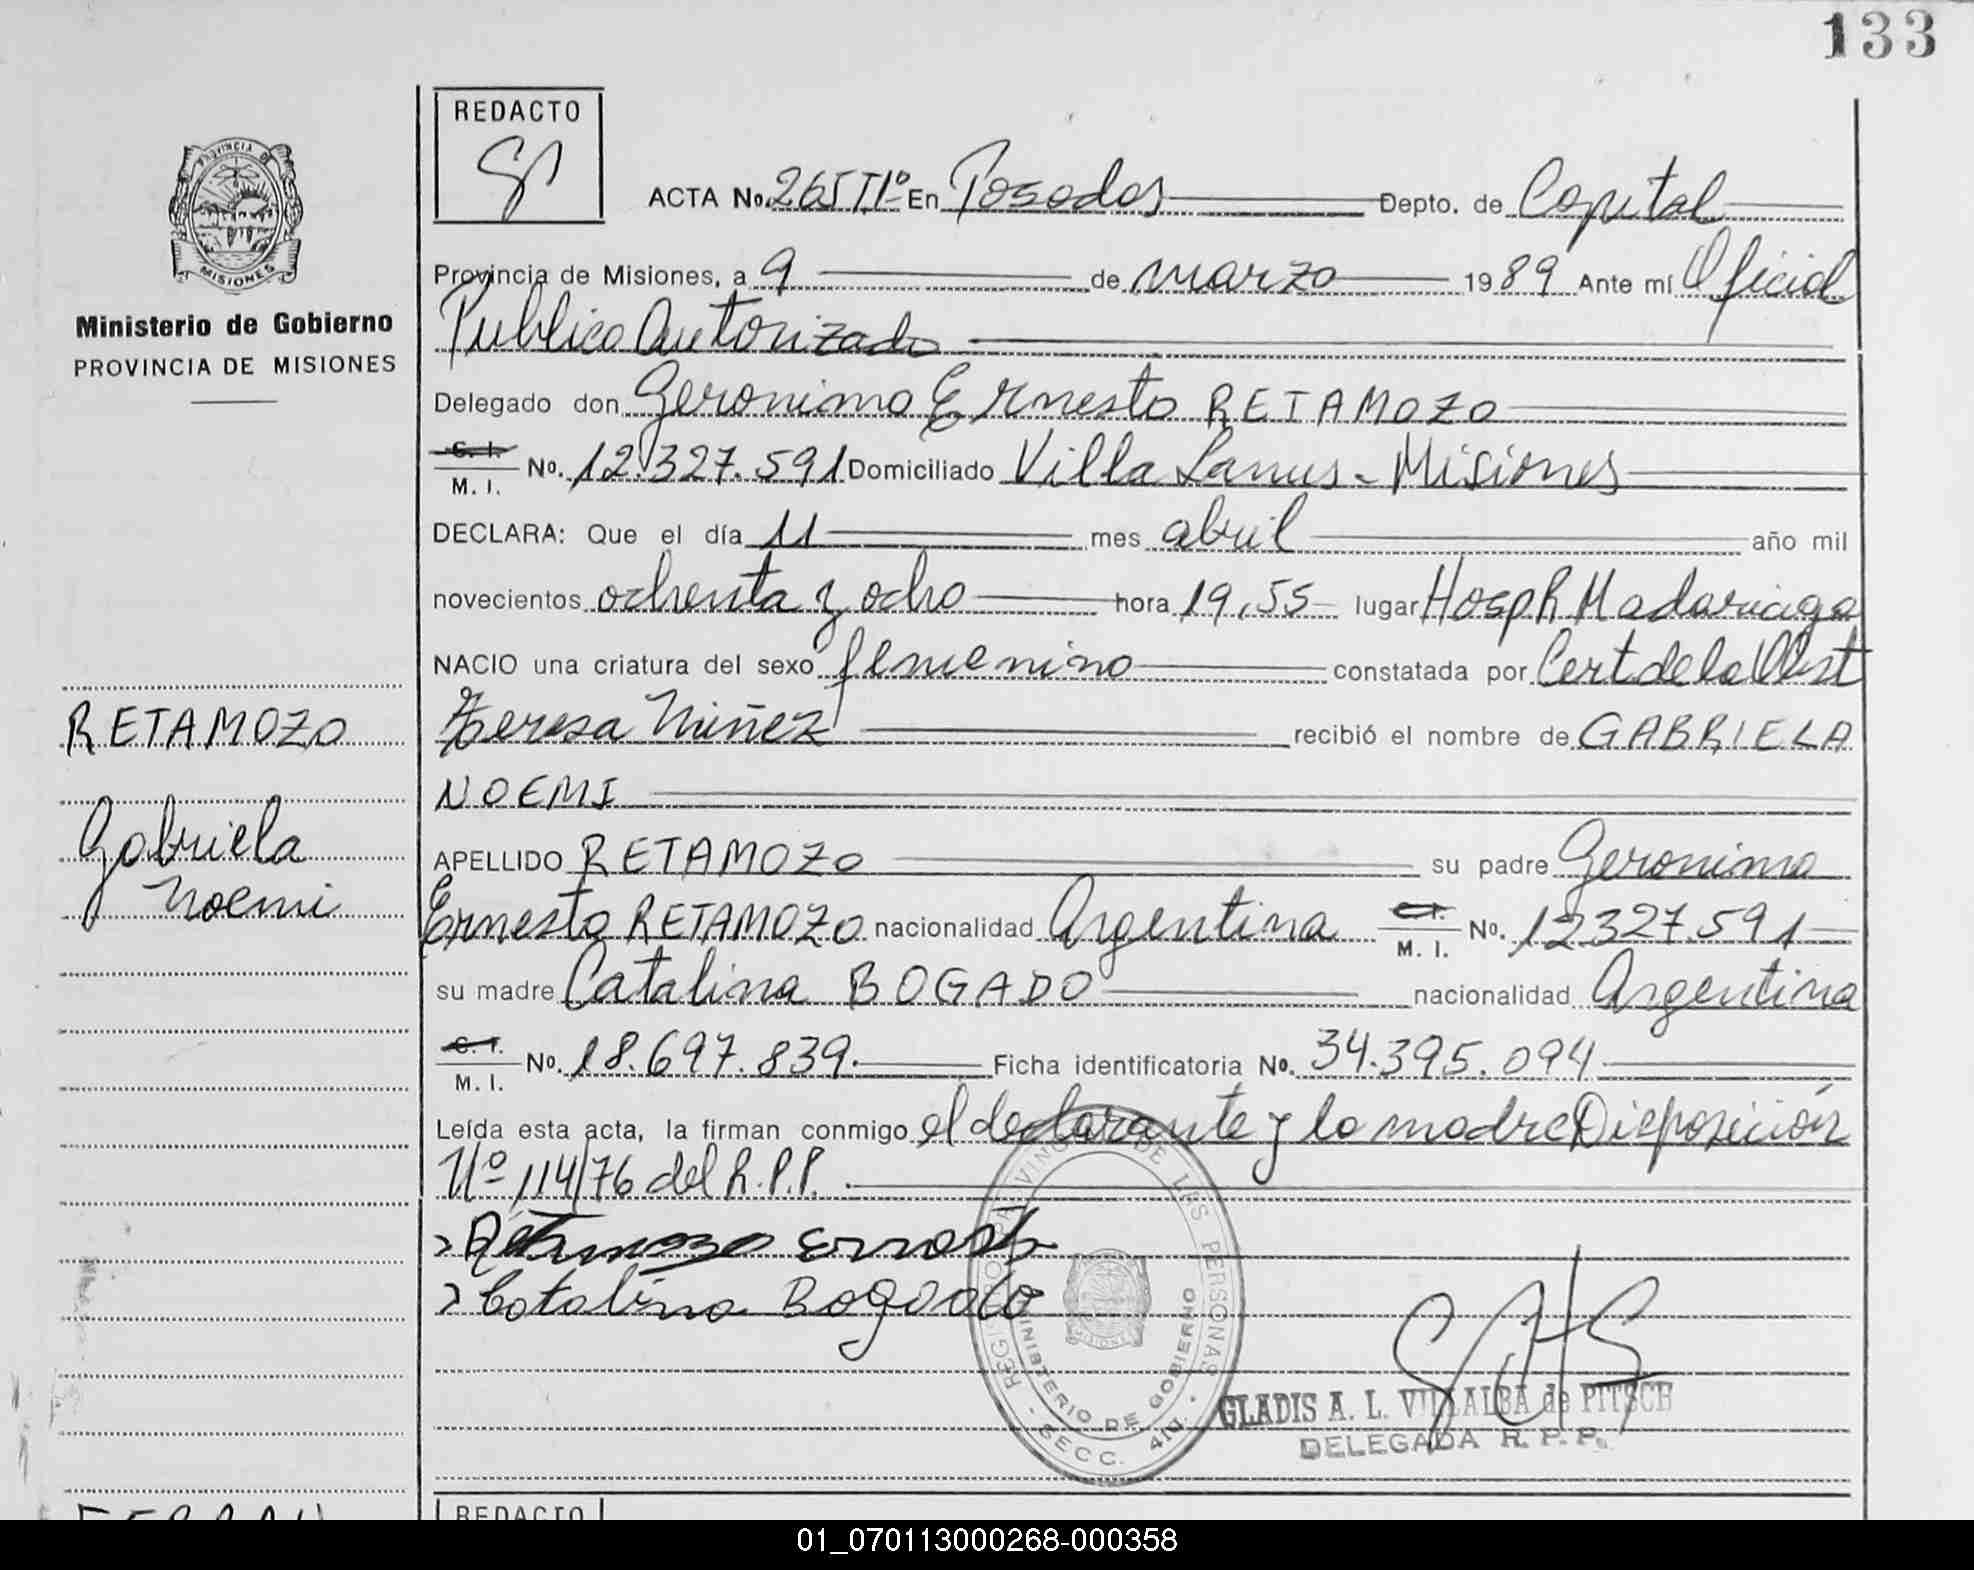 133
REDACTO
ACTA No. 265 TIº En Posadas Depto. de Capital
Provincia de Misiones, a 9 de marzo 1989 Ante mí Oficial
Publico Autorizado
Delegado don Geronimo Ernesto RETAMOZO
C. I. M. I. No. 12.327.591 Domiciliado Villa Lanus - Misiones
DECLARA: Que el día 11 mes abril año mil
novecientos ochenta y ocho hora 19,55 lugar Hosp R Madariaga
NACIO una criatura del sexo femenino constatada por Cert de la Obst
Teresa Niñez recibió el nombre de GABRIELA
NOEMI
APELLIDO RETAMOZO su padre Geronimo
Ernesto RETAMOZO nacionalidad Argentina C. I. M. I. No. 12327.591
su madre Catalina BOGADO nacionalidad Argentina
C. I. M. I. No. 18.697.839. Ficha identificatoria No. 34.395.094
Leída esta acta, la firman conmigo el declarante y la madre Disposición
Nº 114/76 del R.P.P.
Retamozo Ernesto
Catalina Bogado
REGISTRO PROVINCIAL DE LAS PERSONAS
MINISTERIO DE GOBIERNO
SECC. 4ta.
MISIONES
GLADIS A. L. VILLALBA de PITSCH
DELEGADA R. P. P.
PROVINCIA DE
MISIONES
Ministerio de Gobierno
PROVINCIA DE MISIONES
RETAMOZO
Gabriela
Noemi
REDACTO
01_070113000268-000358